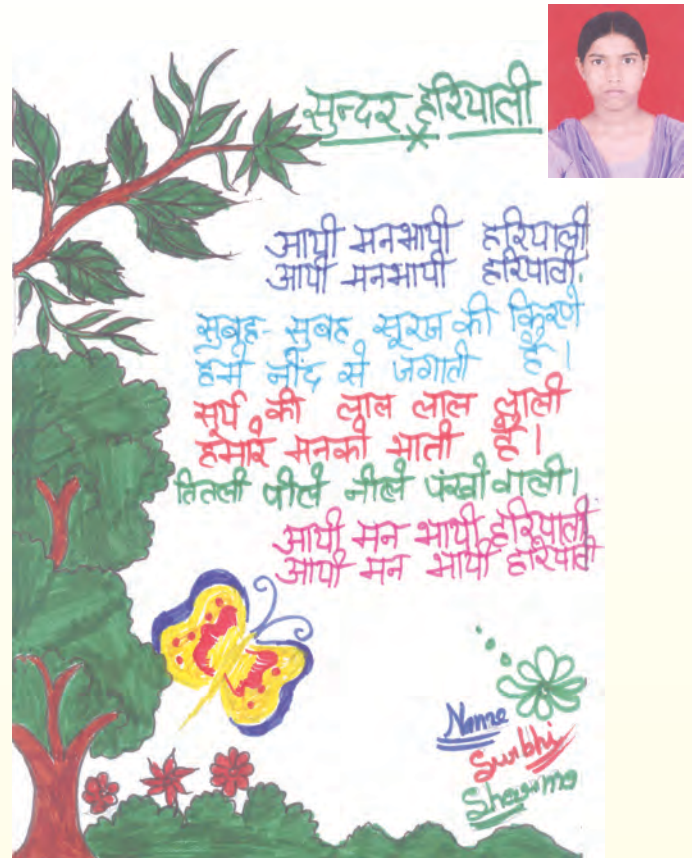 सुन्दर हरियाली
आयी मनभायी हरियाली
आयी मनभायी हरियाली
सुबह- सुबह सूरज की किरणे
हमे नींद से जगाती है।
सूर्य की लाल लाल लाली
हमारे मनको भाती है।
तितली पीले नीले पंखो वाली।
आयी मन भायी हरियाली
आयी मन भायी हरियाली
Name
Surbhi
Sharma